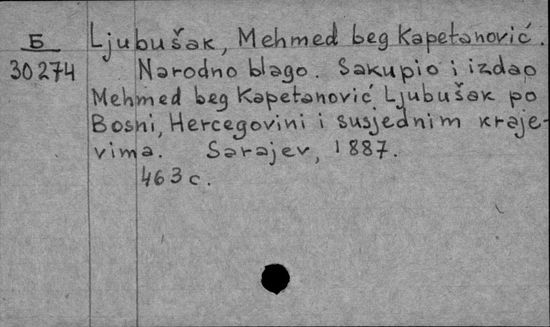 Б
30274
Ljubušak, Mehmed beg Kapetanović.
Narodno blago. Sakupio i izdao
Mehmed beg Kapetanović Ljubušak po
Bosni, Hercegovini i susjednim kraje-
vima. Sarajev, 1887.
463 c.